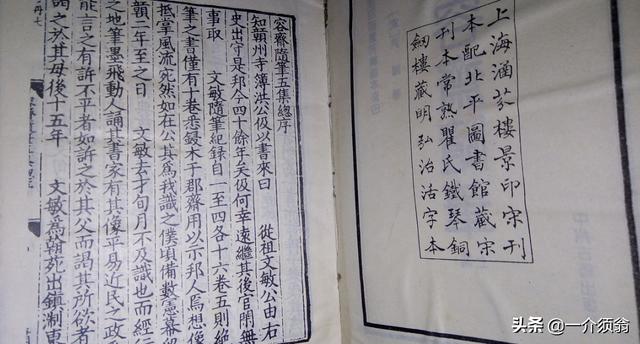 上海涵芬樓景印宋刊
本配北平圖書館藏宋
刊本常熟瞿氏鐵琴銅
劍樓藏明弘治活字本
容齋隨筆五集總序
知贛州寺簿洪公伋以書來曰 從祖文敏公由右
史出守是邦今四十餘年矣伋何幸遠繼其後官閑無
事取 文敏隨筆紀錄自一至四各十六卷五則絕
筆之書僅有十卷悉鋟木于郡齋用以示邦人焉想像
抵掌風流宛然如在公其爲我識之僕頃備數憲幕
贛二年至之日 文敏去才旬月不及識也而經行
之地筆墨飛動人誦其書家有其像平易近民之政
能言之有訴不平者如訴之於其父而謁其所欲者
謁之於其母後十五年 文敏爲翰苑出鎮浙東
头条 @一介须翁